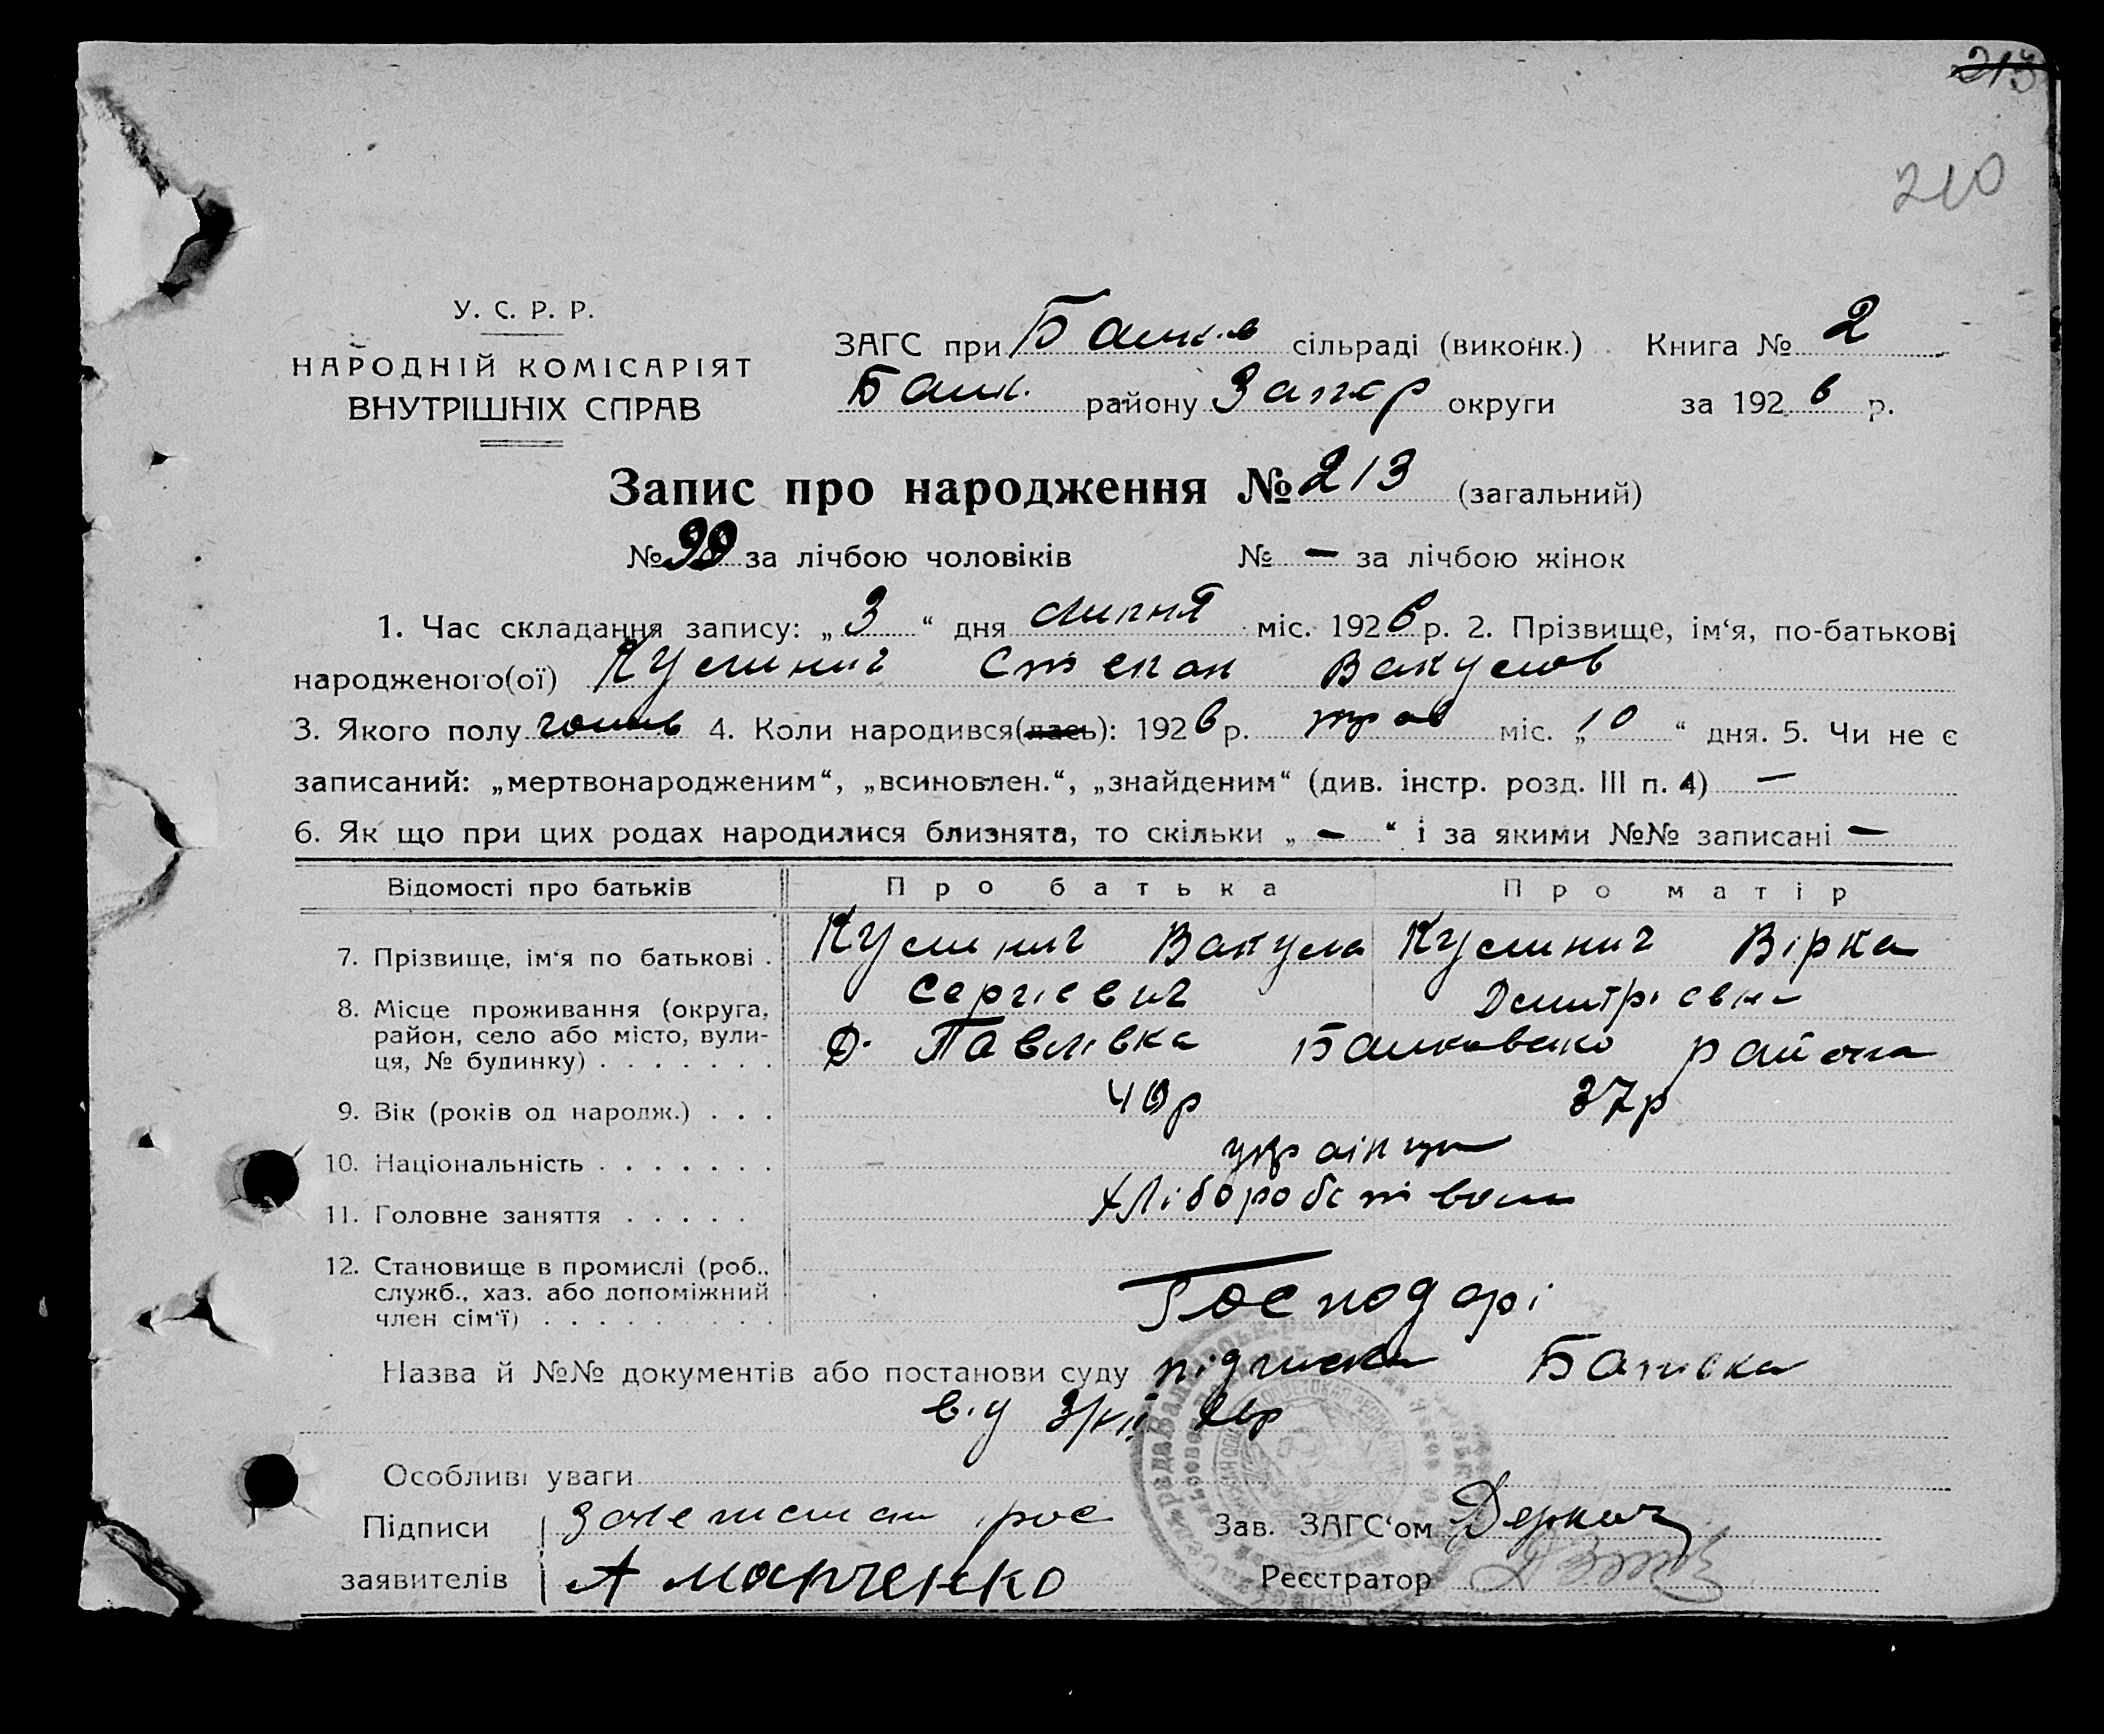 213
210
У. С. Р. Р.
НАРОДНІЙ КОМІСАРІЯТ
ВНУТРІШНІХ СПРАВ
ЗАГС при сільраді (виконк.) Книга № 2
району Запор округи за 1926 р.
Запис про народження № 213 (загальний)
№ 99 за лічбою чоловіків № — за лічбою жінок
1. Час складання запису: „3“ дня липня міс. 1926 р. 2. Прізвище, ім‘я, по-батькові
народженого(ої) Кулинич Степан Вакулов
3. Якого полу чолов 4. Коли народився(лась): 1926 р. трав міс. „10“ дня. 5. Чи не є
записаний: „мертвонародженим“, „всиновлен.“, „знайденим“ (див. інстр. розд. III п. 4) —
6. Як що при цих родах народилися близнята, то скільки „ — “ і за якими №№ записані —
Відомості про батьків Про батька Про матір
7. Прізвище, ім‘я по батькові . Кулинич Вакула Кулинич Вірка
Сергієвич Дмитрієвна
8. Місце проживання (округа,
район, село або місто, вули-
ця, № будинку) . . . . . . . Д. Павлівка района
9. Вік (років од народж.) . . . 40р 37р
10. Національність . . . . . . . українци
11. Головне заняття . . . . . Хліборобством
12. Становище в промислі (роб.,
служб., хаз. або допоміжний
член сім‘ї) . . . . . . . . . Господарі
Назва й №№ документів або постанови суду підписка Батька
від 3/VII 26р
Особливі уваги
Підписи
заявителів
А Марченко
Зав. ЗАГС‘ом Деркач
Реєстратор